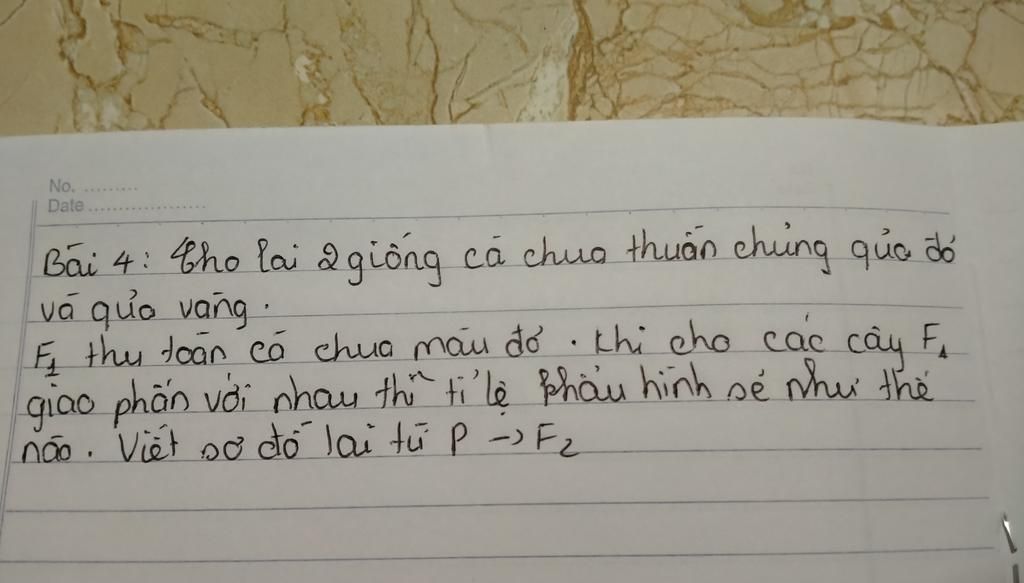 No. .........
Date ...................
Bài 4: Cho lai 2 giống cà chua thuần chủng qủa đỏ
và qủa vàng.
F1 thu toàn cà chua màu đỏ. Khi cho các cây F1
giao phấn với nhau thì tỉ lệ kiểu hình sẽ như thế
nào. Viết sơ đồ lai từ P -> F2